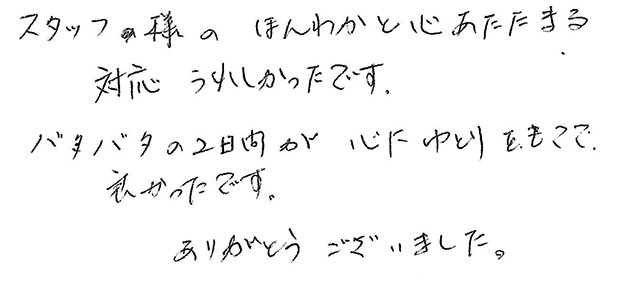 スタッフの様の ほんわかと心あたたまる
対応 うれしかったです.
バタバタの2日間が 心にゆとりをもてて.
良かったです。
ありがとうございました。